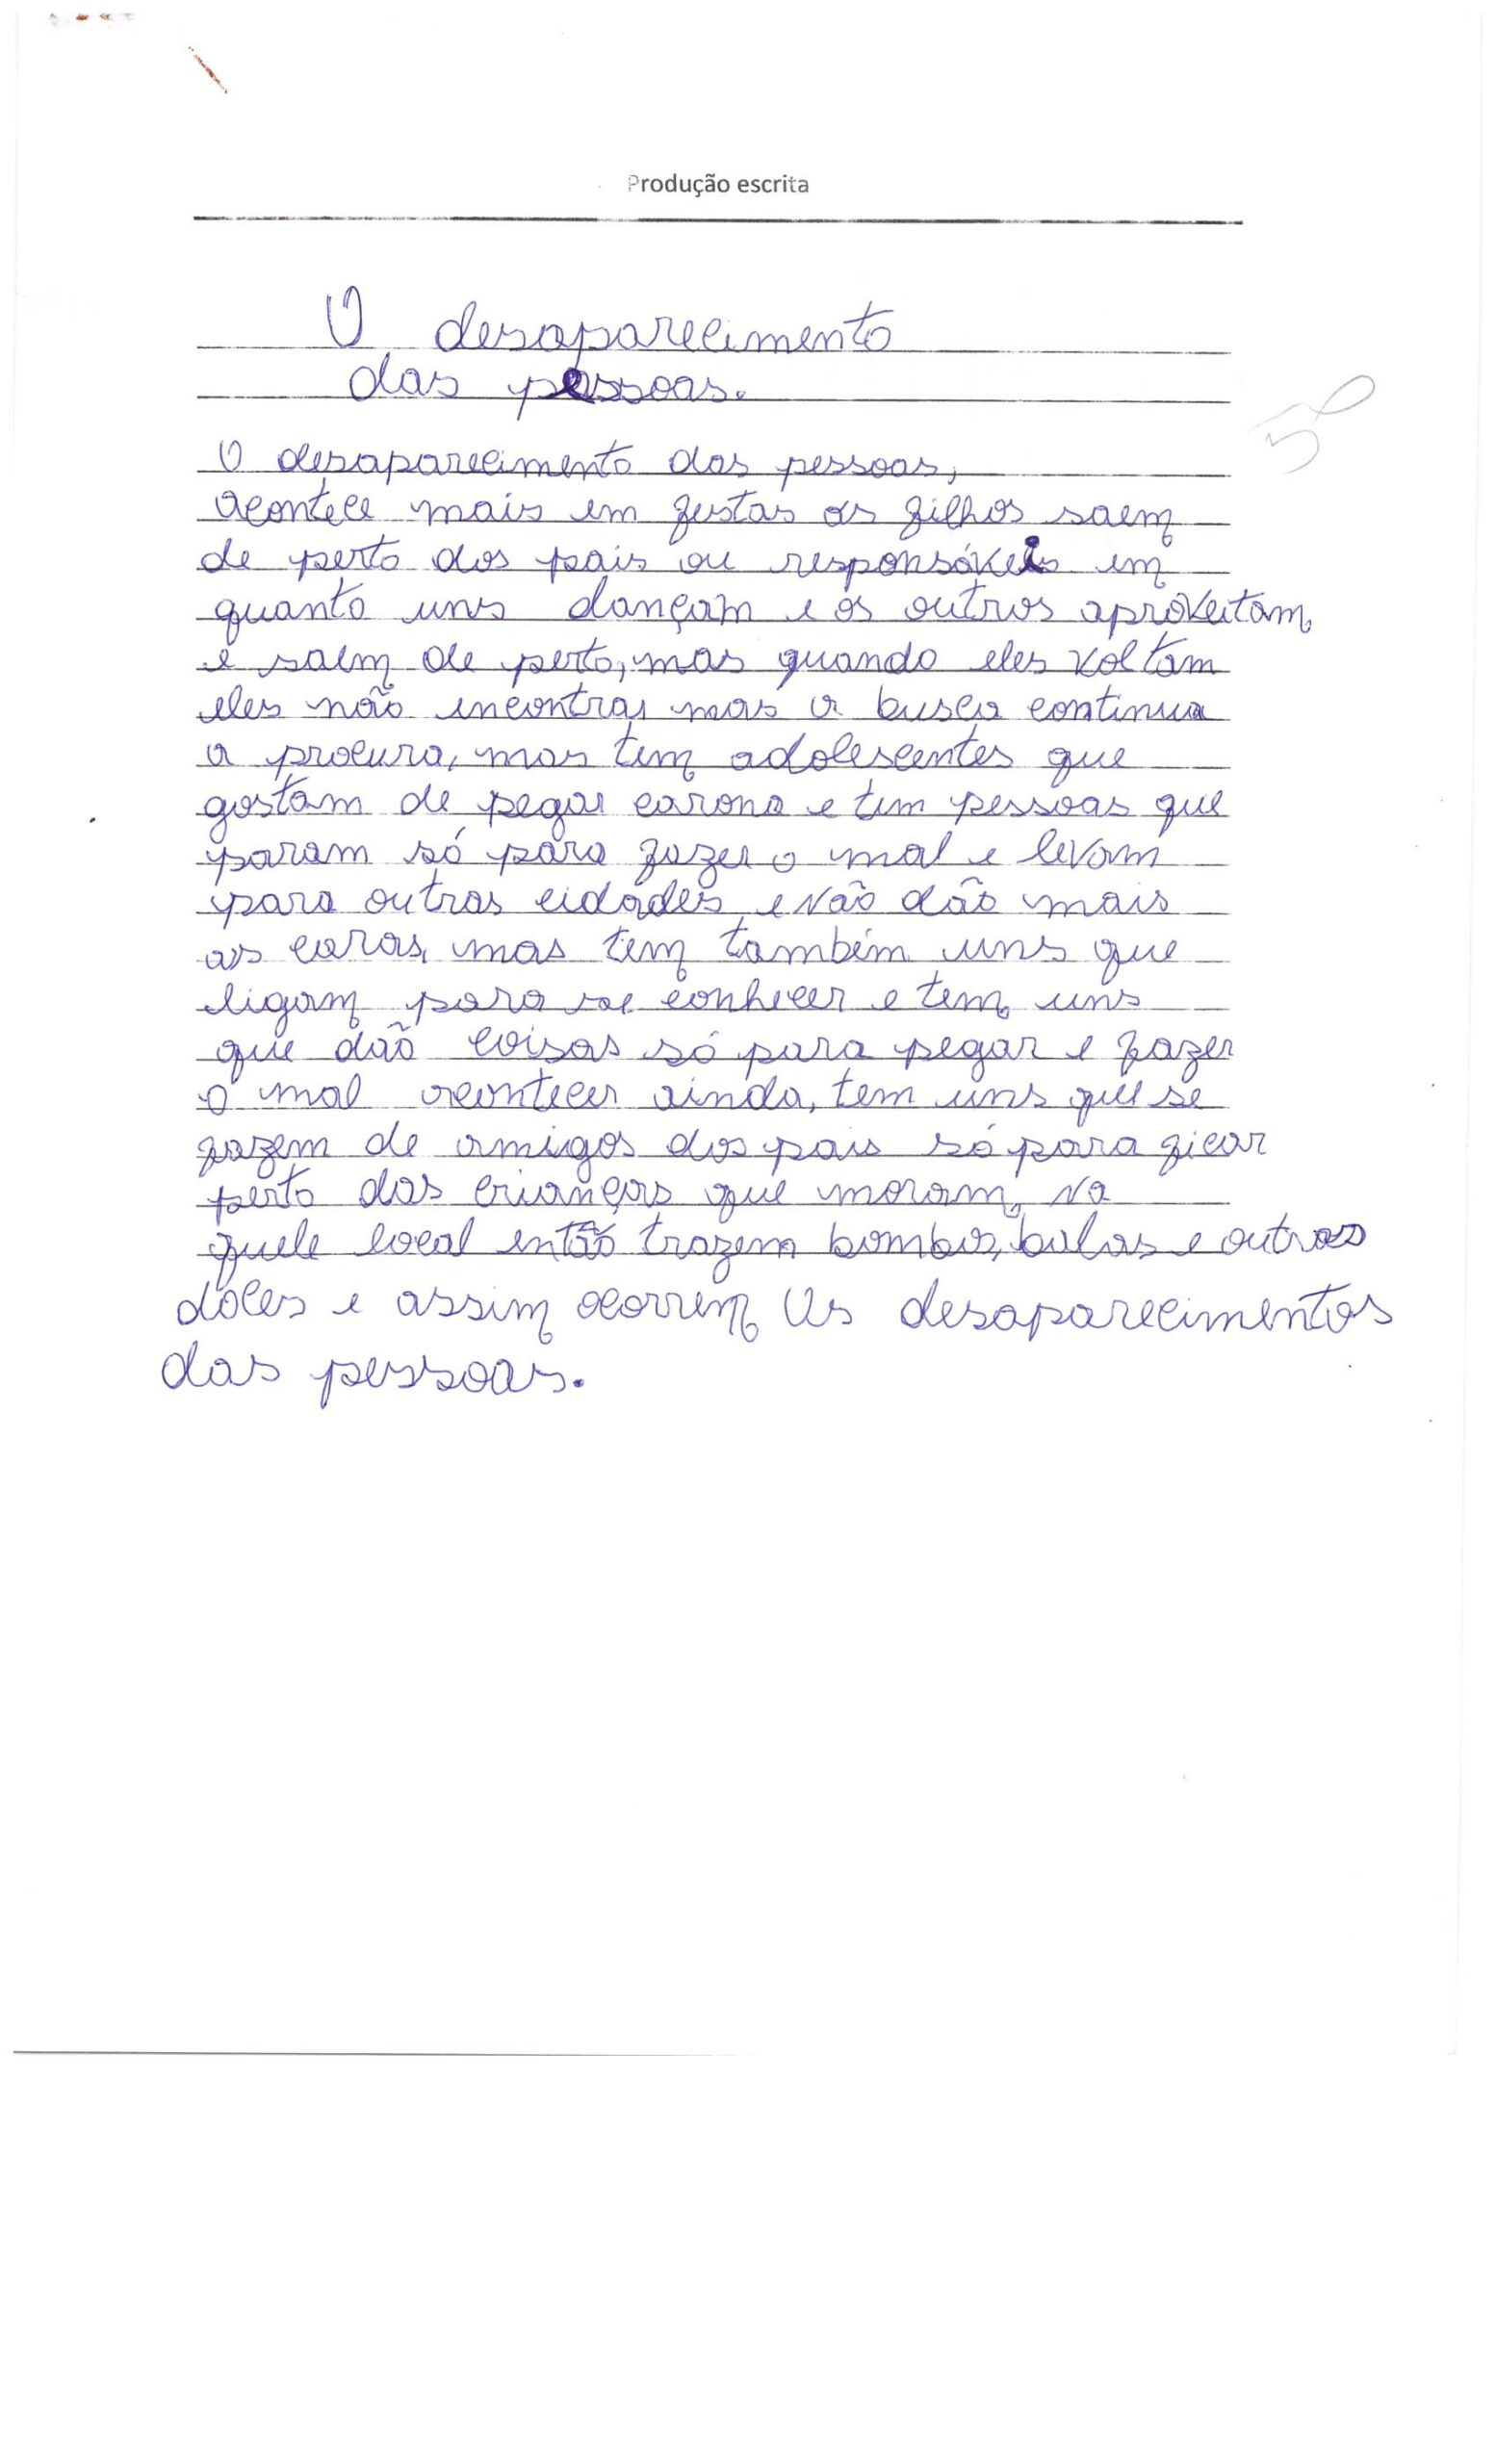 Produção escrita
O desaparecimento
das pessoas.
5º
O desaparecimento das pessoas,
acontece mais em festas os filhos saem
de perto dos pais ou responsáveis em
quanto uns dançam e os outros aproveitam
e saem de perto, mas quando eles voltam
eles não encontrar mas a busca continua
a procura, mas tem adolescentes que
gostam de pegar carona e tem pessoas que
param só para fazer o mal e levam
para outras cidades e não dão mais
as caras, mas tem também uns que
ligam para se conhecer e tem uns
que dão coisas só para pegar e fazer
o mal acontecer ainda, tem uns que se
fazem de amigos dos pais só para ficar
perto das crianças que moram na
quele local então trazem bombos, balas e outros
doces e assim ocorrem Os desaparecimentos
das pessoas.